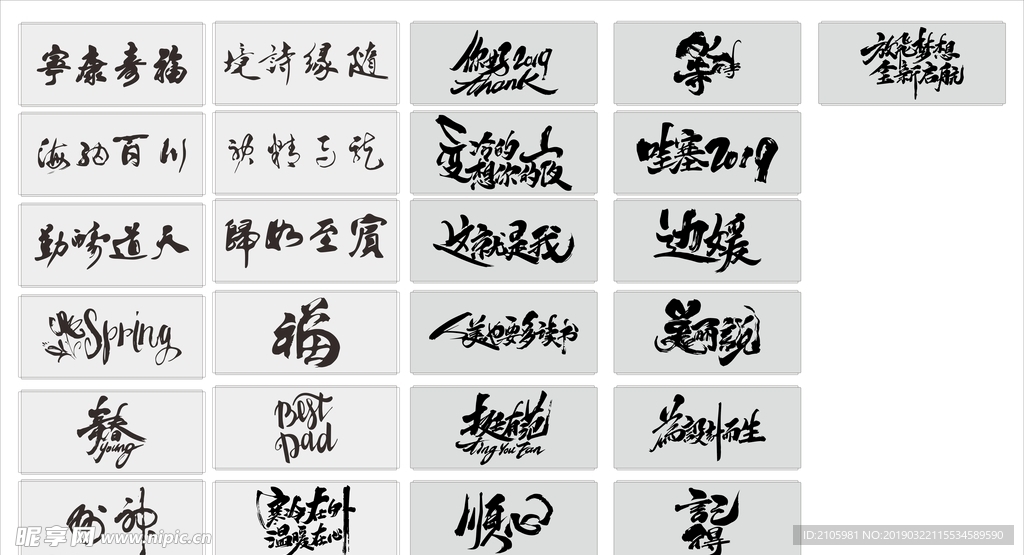 寧康壽福
境詩緣隨
你好2019
thank
等
放飛梦想
全新启航
海納百川
精
变冷的
想你的夜
哇塞2019
勤酬道天
歸如至賓
这就是我
边媛
Spring
福
人美也要多读书
美丽説
青春
young
Best
Dad
挺有范
Ting You Fan
為設計而生
神
寒冷在外
温暖在心
順心
記得
昵享网 www.nipic.cn
ID:2105981 NO:20190322115534589590